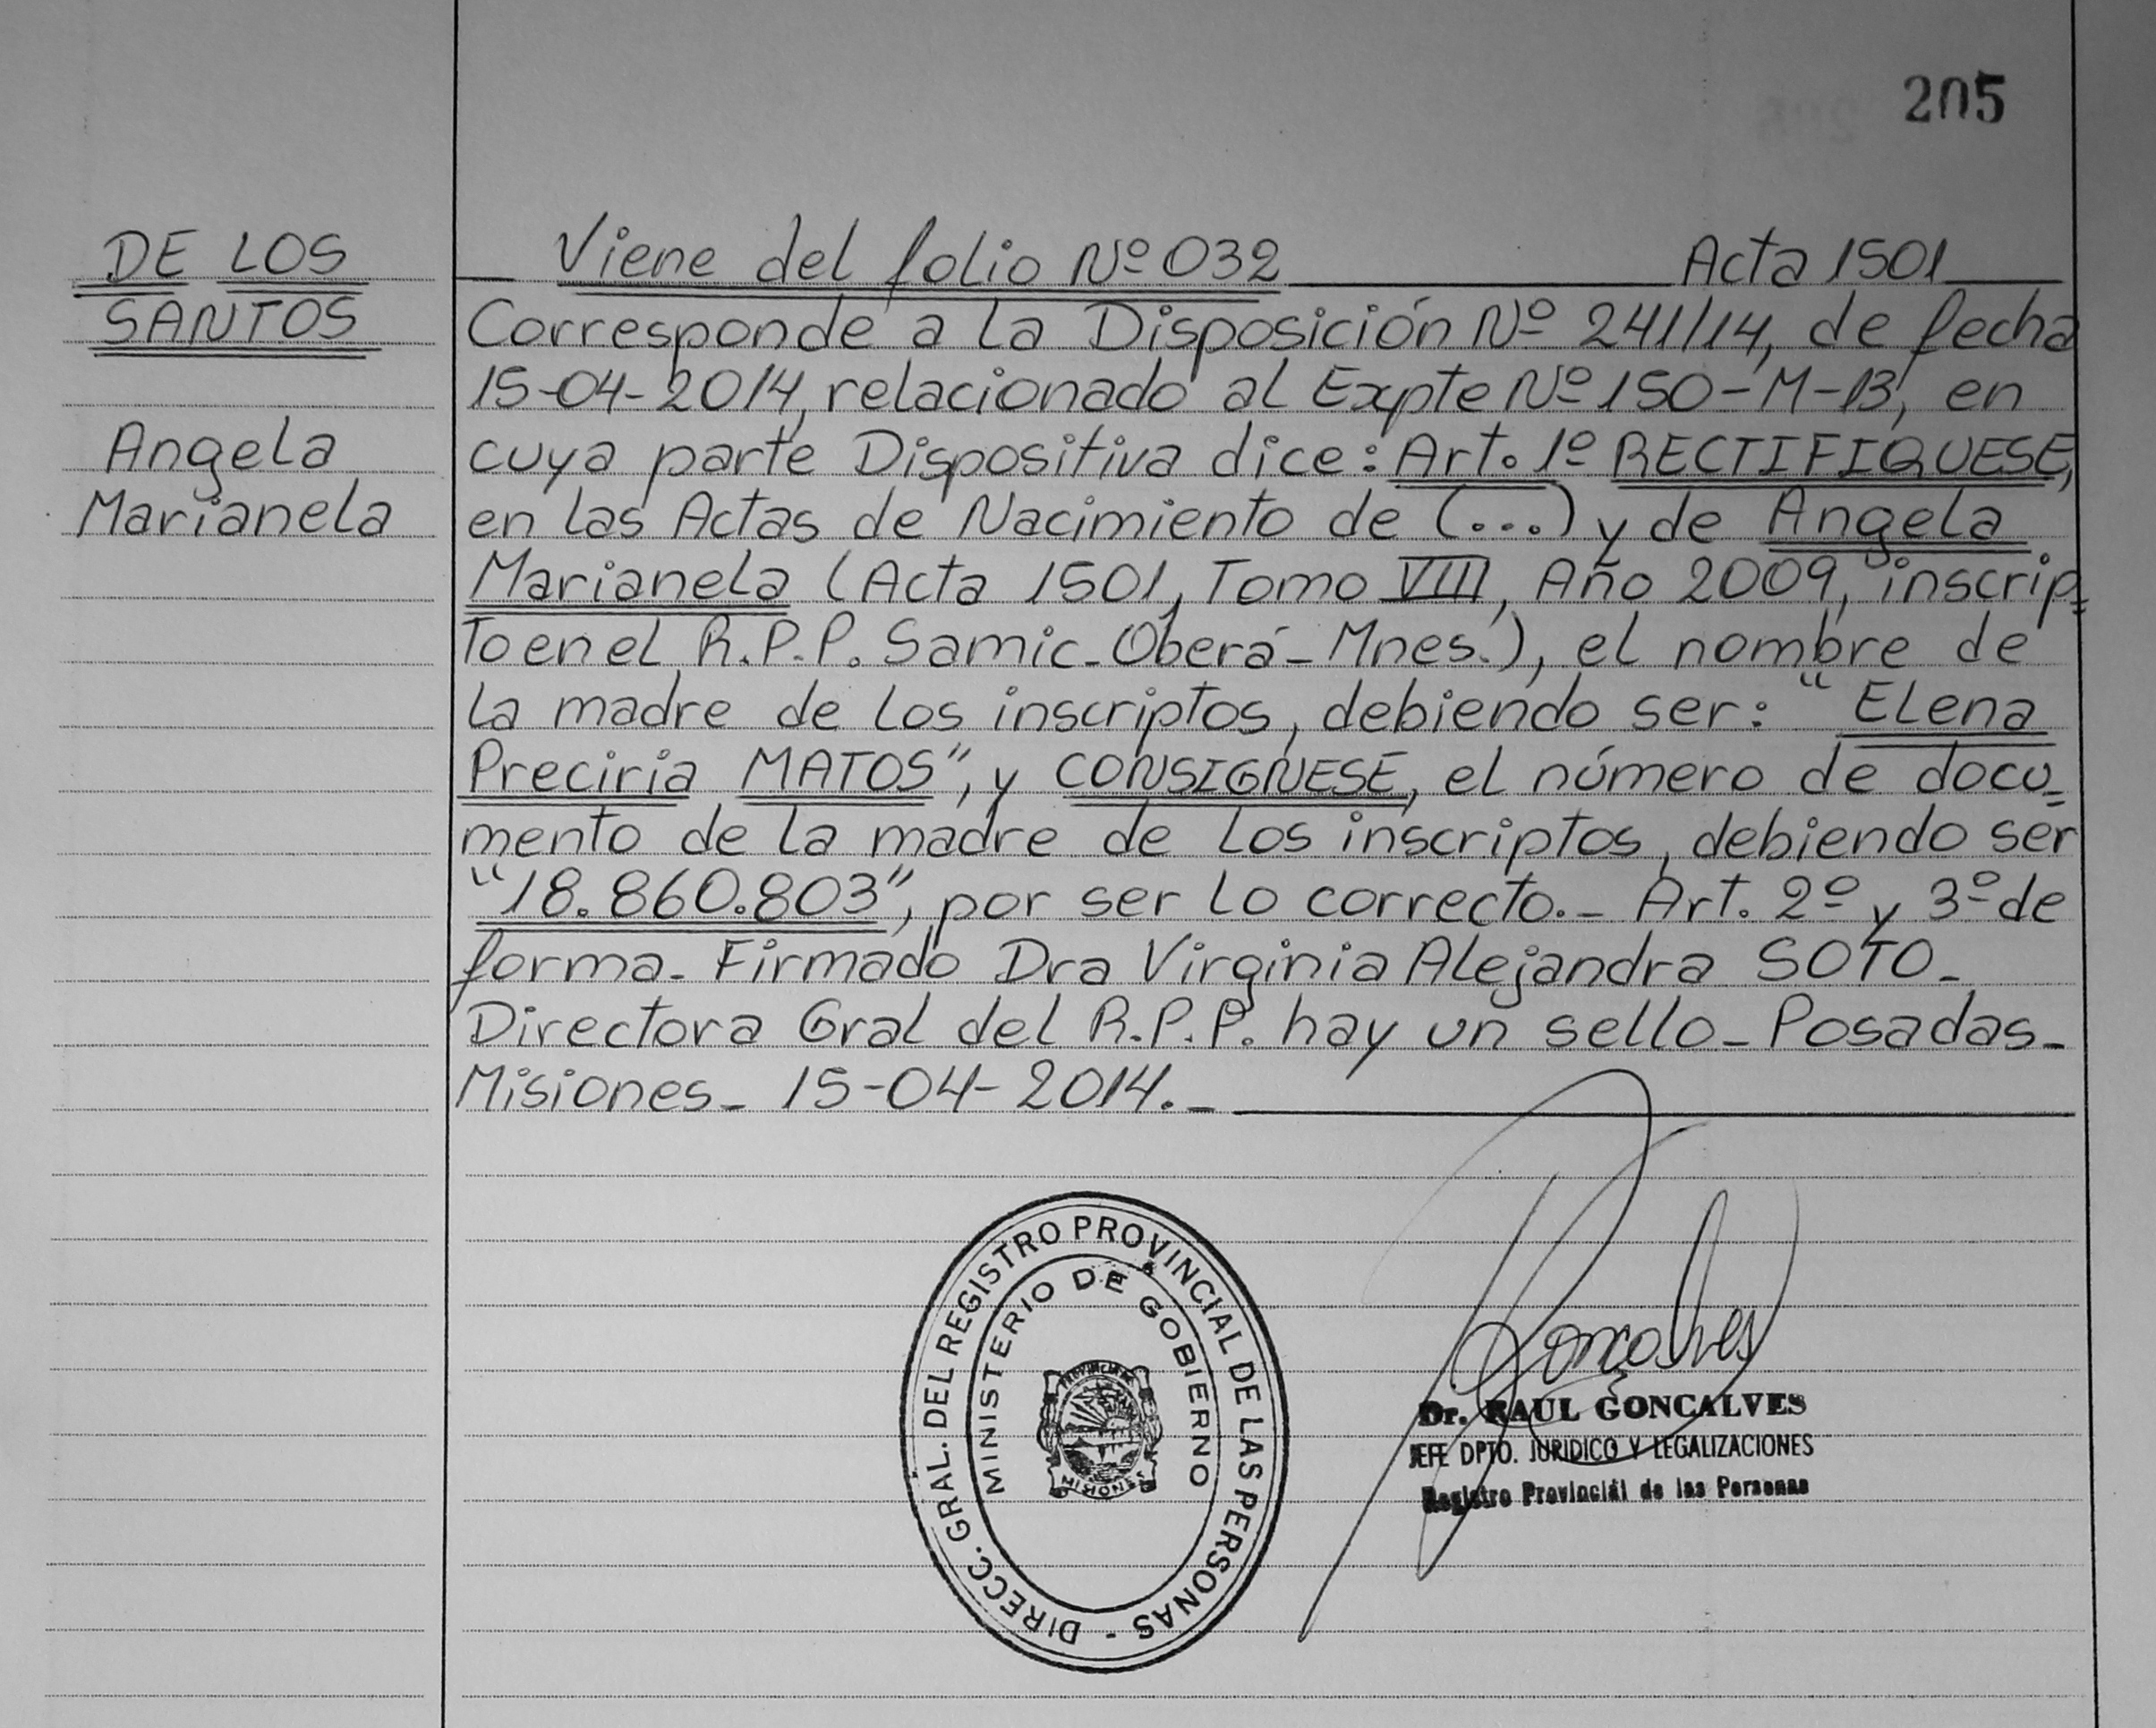 205
DE LOS
SANTOS
Angela
Marianela
Viene del folio Nº 032 Acta 1501
Corresponde a la Disposición Nº 241/14, de fecha
15-04-2014, relacionado al Expte Nº 150-M-13, en
cuya parte Dispositiva dice: Art. 1º RECTIFIQUESE,
en las Actas de Nacimiento de (...) y de Angela
Marianela (Acta 1501, Tomo VIII, Año 2009, inscrip-
to en el R.P.P. Samic-Oberá-Mnes.), el nombre de
la madre de los inscriptos, debiendo ser: "Elena
Preciria MATOS", y CONSIGNESE, el número de docu-
mento de la madre de los inscriptos, debiendo ser
"18.860.803", por ser lo correcto.- Art. 2º y 3º de
forma- Firmado Dra Virginia Alejandra SOTO-
Directora Gral del R.P.P. hay un sello- Posadas-
Misiones- 15-04-2014.-
DIRECC. GRAL. DEL REGISTRO PROVINCIAL DE LAS PERSONAS -
MINISTERIO DE GOBIERNO
PROVINCIA DE
MISIONES
Goncalves
Dr. RAUL GONCALVES
JEFE DPTO. JURIDICO Y LEGALIZACIONES
Registro Provincial de las Personas